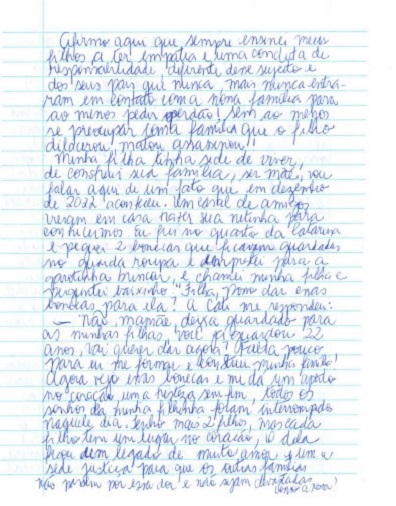 Afirmo aqui que sempre ensinei meus
filhos a ter empatia e uma conduta de
responsabilidade, diferente desse sujeito e
dos seus pais que nunca, mais nunca entra-
ram em contato com a nossa família para
ao menos pedir perdão! Sem ao menos
se preocupar com a família que o filho
dilacerou! matou
Minha filha tinha sede de viver,
de construir sua família, ser mãe, vou
falar aqui de um fato que em dezembro
de 2022 aconteceu. Um casal de amigos
vieram em casa trazer sua netinha para
conhecermos. Eu fui no quarto da Catarina
e peguei 2 bonecas que ficavam guardadas
no guarda roupa e para a
garotinha brincar, e chamei minha filha e
perguntei baixinho: "Filha, posso dar essas
bonecas para ela? a Cati me respondeu:
— Não, mamãe, deixa guardado para
as minhas filhas, você já guardou 22
anos, vai querer dar agora? Falta pouco
para eu me formar e construir minha família!
Agora vejo essas bonecas e me dá um aperto
no coração, uma tristeza sem fim, todos os
sonhos da minha filhinha foram interrompidos
naquele dia. Tenho mais 2 filhos, mas cada
filho tem um lugar no coração, o dela
ficou legado de muito amor e uma
sede justiça para que as outras famílias
não passem por essa dor e não sejam devastadas
como a nossa!